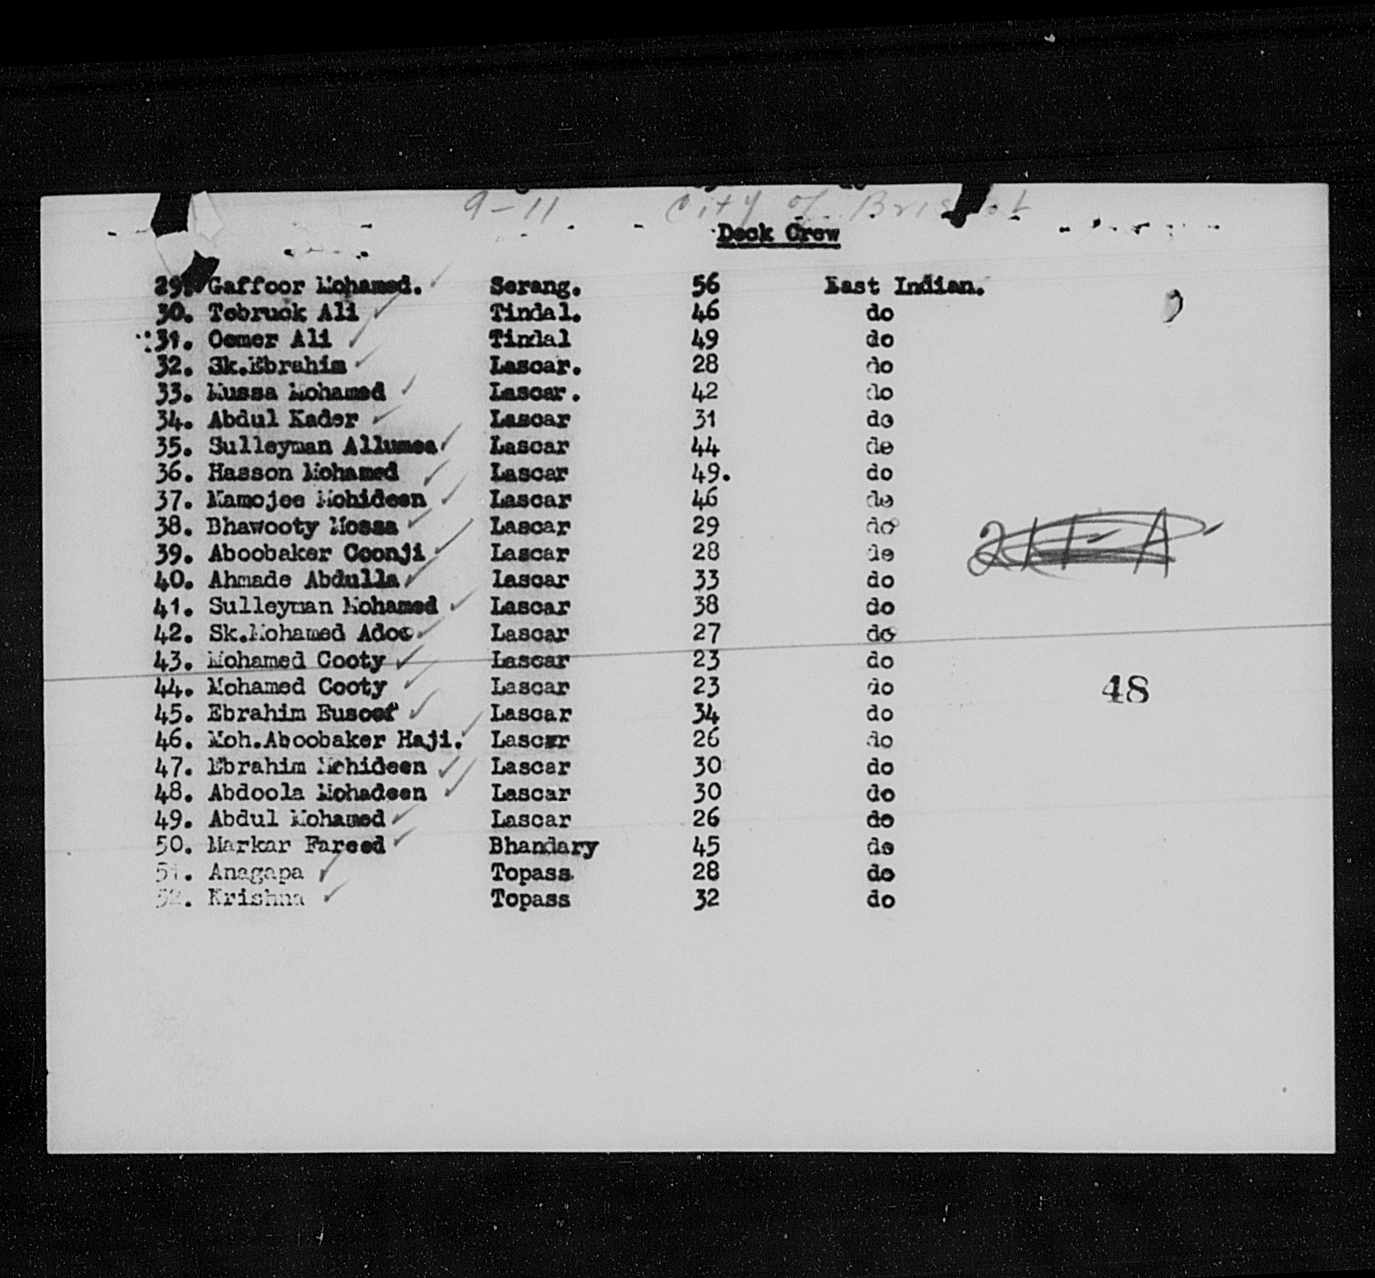 9-11 City of Bristol
Deck Crew
29. Gaffoor Mohamed. Serang. 56 East Indian.
30. Tebruck Ali Tindal. 46 do
31. Oomer Ali Tindal 49 do
32. Sk.Ebrahim Lascar. 28 do
33. Mussa Mohamed Lascar. 42 do
34. Abdul Kader Lascar 31 do
35. Sulleyman Allumea Lascar 44 do
36. Hasson Mohamed Lascar 49. do
37. Mamojee Mohideen Lascar 46 do
38. Bhawooty Mossa Lascar 29 do
39. Aboobaker Coonji Lascar 28 do
40. Ahmade Abdulla Lascar 33 do
41. Sulleyman Mohamed Lascar 38 do
42. Sk.Mohamed Adoo Lascar 27 do
43. Mohamed Cooty Lascar 23 do
44. Mohamed Cooty Lascar 23 do
48
45. Ebrahim Eusoof Lascar 34 do
46. Moh.Aboobaker Haji. Lascar 26 do
47. Ebrahim Mohideen Lascar 30 do
48. Abdoola Mohadeen Lascar 30 do
49. Abdul Mohamed Lascar 26 do
50. Markar Fareed Bhandary 45 do
51. Anagapa Topass 28 do
52. Krishna Topass 32 do